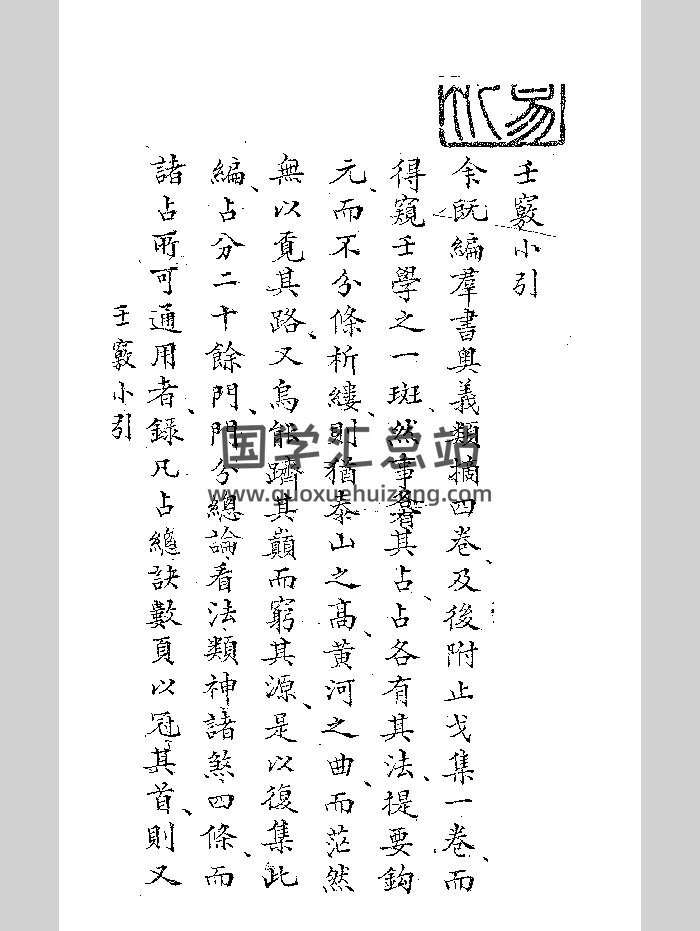 壬竅小引
余既編羣書奧義類摘四卷、及後附止戈集一卷、而
得窺壬學之一斑、然事各有其占、占各有其法、提要鈎
元、而不分條析縷、則猶泰山之高、黃河之曲、而茫然
無以覓其路、又烏能躋其巔而窮其源、是以復集此
編、占分二十餘門、門分總論看法類神諸煞四條、而
諸占所可通用者、錄凡占總訣數頁以冠其首、則又
壬竅小引
国学汇总站
www.guoxuehuizong.com